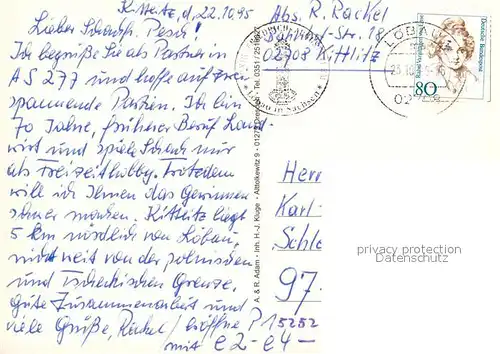 Kittlitz, d. 22.10.95
Lieber Schachfr. Pesch!
Ich begrüße Sie als Partner in
AS 277 und hoffe auf zwei
spannende Partien. Ich bin
70 Jahre, früherer Beruf Land-
wirt und spiele Schach nur
als Freizeithobby. Trotzdem
will ich Ihnen das Gewinnen
schwer machen. Kittlitz liegt
5 km nördlich von Löbau,
nicht weit von der polnischen
und Tschechischen Grenze.
Gute Zusammenarbeit und
viele Grüße, Rackel / eröffne P 15252
mit e2-e4-
Abs. R. Rackel
-Str. 18
02708 Kittlitz
Löbau in Sachsen
LÖBAU
02708
Deutsche Bundespost
80
A. & R. Adam · Inh. H.-J. Kluge · Alttolkewitz 9 · 01279 Dresden · Tel. 0351 /
Herr
Karl-
Schle
97.
privacy protection
DELCAMPE.NET